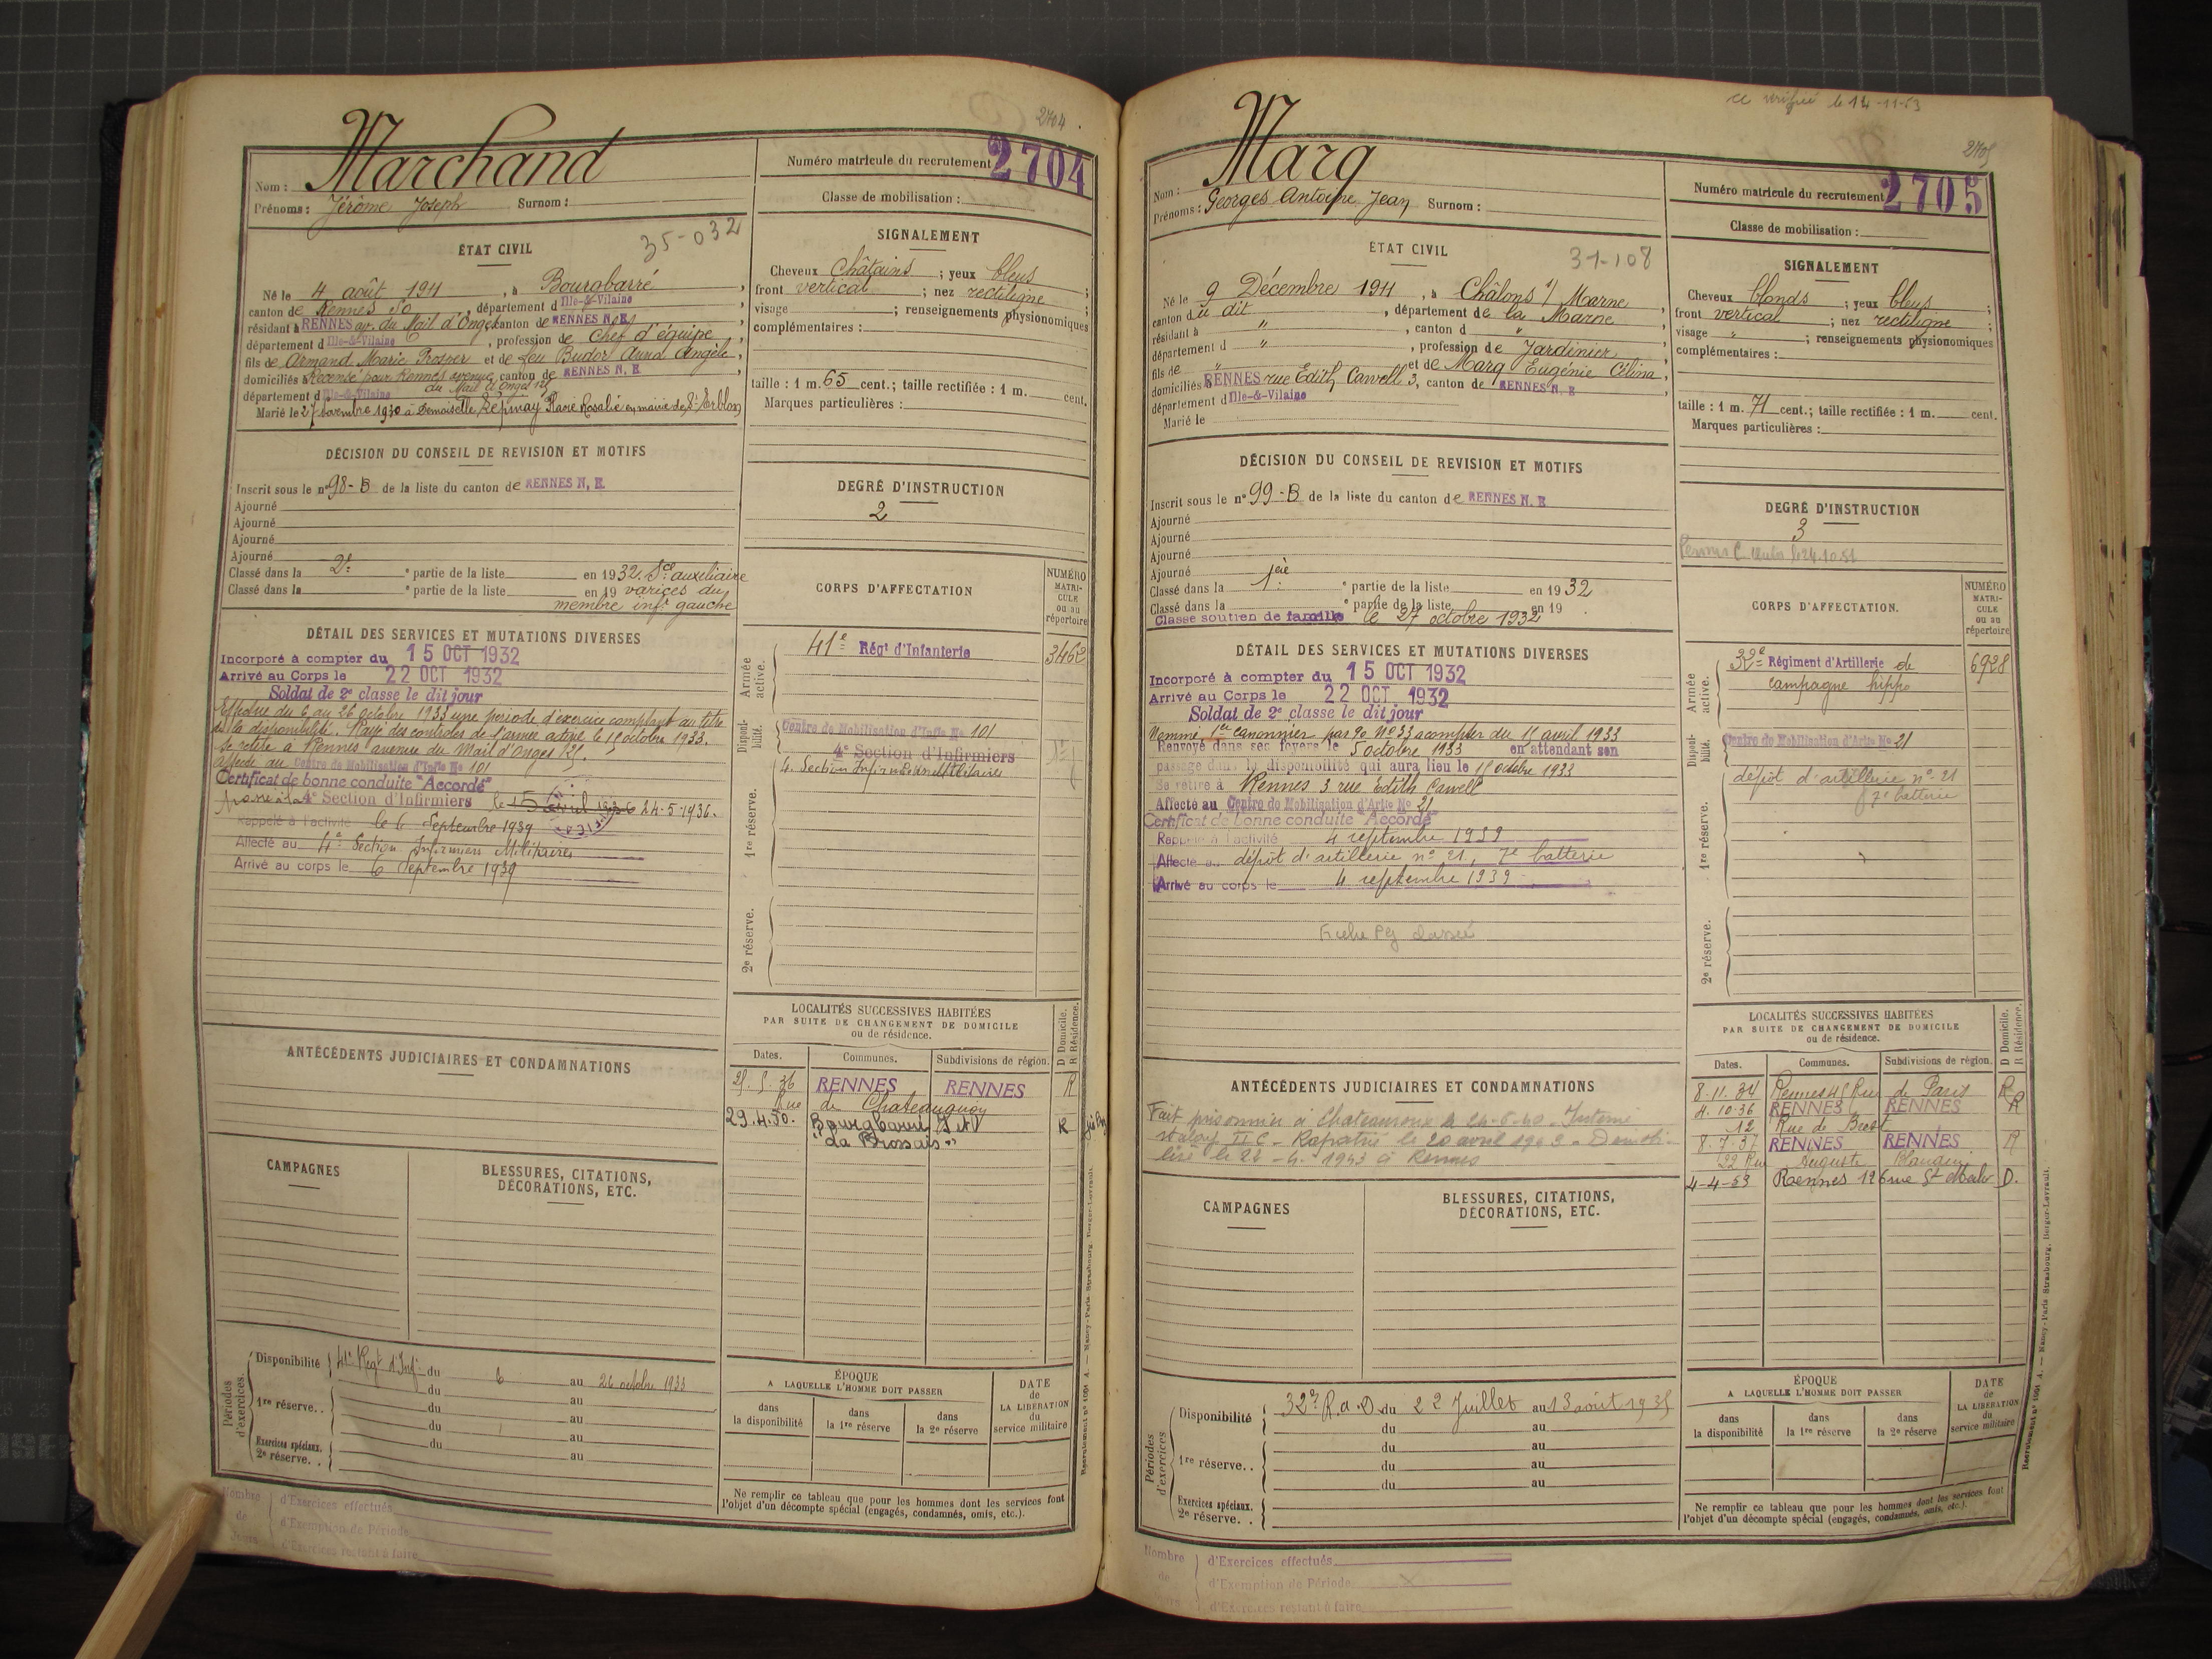 2704
Marchand
Nom :
Prénoms : Jérôme Joseph Surnom :
Numéro matricule du recrutement 2704
Classe de mobilisation :
35-032
ÉTAT CIVIL
Né le 4 août 1911, à Bourgbarré,
canton de Rennes SO, département d Ille-&-Vilaine
résidant à RENNES av. du Mail d'Onges canton de RENNES N.E,
département d Ille-&-Vilaine, profession de Chef d'équipe,
fils de Armand Marie Prosper et de Leu Budor Anna Angèle,
domiciliés à Recensé pour Rennes avenue canton de RENNES N. E
du Mail d'Onges
département d Ille-&-Vilaine
Marié le 27 novembre 1930 à Demoiselle Lépinay Marie Rosalie en mairie de St Erblon
SIGNALEMENT
Cheveux Châtains ; yeux bleus ;
front vertical ; nez rectiligne ;
visage ; renseignements physionomiques
complémentaires :
taille : 1 m. 65 cent.; taille rectifiée : 1 m. cent.
Marques particulières :
DÉCISION DU CONSEIL DE REVISION ET MOTIFS
Inscrit sous le n° 98-B de la liste du canton de RENNES N. E.
Ajourné
Ajourné
Ajourné
Ajourné
Classé dans la 2e partie de la liste en 1932. Sce auxiliaire
Classé dans la partie de la liste en 19 varices du
membre inf. gauche
DEGRÉ D'INSTRUCTION
2
DÉTAIL DES SERVICES ET MUTATIONS DIVERSES
Incorporé à compter du 15 OCT 1932
Arrivé au Corps le 22 OCT 1932
Soldat de 2e classe le dit jour
Effectue du 6 au 26 octobre 1933 une période d'exercice comptant au titre
de la disponibilité. Rayé des contrôles de l'armée active le 15 octobre 1933.
Se retire à Rennes avenue du Mail d'Onges
affecté au Centre de Mobilisation d'Infie No 101
Certificat de bonne conduite "Accordé"
passé à la 4e Section d'Infirmiers le 15 avril 1936 24-5-1936.
Rappelé à l'activité le 6 Septembre 1939
Affecté au 4e Section Infirmiers Militaires
Arrivé au corps le 6 Septembre 1939
CORPS D'AFFECTATION
NUMÉRO MATRICULE ou au répertoire
Armée active.
41e Régt d'Infanterie 3462
Disponibilité.
Centre de Mobilisation d'Infie No 101
4e Section d'Infirmiers
4. Section Infirmiers Militaires
1re réserve.
2e réserve.
ANTÉCÉDENTS JUDICIAIRES ET CONDAMNATIONS
CAMPAGNES
BLESSURES, CITATIONS, DÉCORATIONS, ETC.
LOCALITÉS SUCCESSIVES HABITÉES
PAR SUITE DE CHANGEMENT DE DOMICILE
ou de résidence.
D Domicile. R Résidence.
Dates. Communes. Subdivisions de région.
25. 5. 36 RENNES RENNES R
Rue de Chateaugiron
29.4.50. Bourgbarré I et V R
"La Brossais"
Périodes d'exercices.
Disponibilité 41e Régt d'Inf. du 6 au 26 octobre 1933
du au
1re réserve. . du au
du au
Exercices spéciaux. du au
2e réserve. .
ÉPOQUE
A LAQUELLE L'HOMME DOIT PASSER
dans la disponibilité
dans la 1re réserve
dans la 2e réserve
DATE de LA LIBÉRATION du service militaire
Ne remplir ce tableau que pour les hommes dont les services font
l'objet d'un décompte spécial (engagés, condamnés, omis, etc.).
Nombre de Jours
d'Exercices effectués
d'Exemption de Période
d'Exercices restant à faire
Recrutement n° 1001 A. — Nancy-Paris-Strasbourg, Berger-Levrault.
vérifié le 14-11-53
2705
Marq
Nom :
Prénoms : Georges Antoine Jean Surnom :
Numéro matricule du recrutement 2705
Classe de mobilisation :
31-108
ÉTAT CIVIL
Né le 9 Décembre 1911, à Châlons s/ Marne,
canton du dit, département de la Marne
résidant à ", canton d "
département d ", profession de Jardinier,
fils de " et de Marq Eugénie Célina,
domiciliés à RENNES rue Edith Cawell 3, canton de RENNES N. E
département d Ille-&-Vilaine
Marié le
SIGNALEMENT
Cheveux blonds ; yeux bleus ;
front vertical ; nez rectiligne ;
visage ; renseignements physionomiques
complémentaires :
taille : 1 m. 71 cent.; taille rectifiée : 1 m. cent.
Marques particulières :
DÉCISION DU CONSEIL DE REVISION ET MOTIFS
Inscrit sous le n° 99-B de la liste du canton de RENNES N. E
Ajourné
Ajourné
Ajourné
Ajourné
Classé dans la 1ère partie de la liste en 1932
Classé dans la partie de la liste en 19
Classé soutien de famille le 27 octobre 1932
DEGRÉ D'INSTRUCTION
3
Permis C 24.10.51
DÉTAIL DES SERVICES ET MUTATIONS DIVERSES
Incorporé à compter du 15 OCT 1932
Arrivé au Corps le 22 OCT 1932
Soldat de 2e classe le dit jour
Nommé 1er canonnier par 90 No 33 à compter du 11 avril 1933
Renvoyé dans ses foyers le 5 octobre 1933 en attendant son
passage dans la disponibilité qui aura lieu le 15 octobre 1933
Se retire à Rennes 3 rue Edith Cawell
Affecté au Centre de Mobilisation d'Artie No 21
Certificat de bonne conduite "Accordé"
Rappelé à l'activité 4 septembre 1939
Affecté au dépôt d'artillerie no 21, 7e batterie
Arrivé au corps le 4 septembre 1939
Fiche Pg
CORPS D'AFFECTATION.
NUMÉRO MATRICULE ou au répertoire
Armée active.
32e Régiment d'Artillerie de 6928
campagne hippo
Disponibilité.
Centre de Mobilisation d'Artie No 21
1re réserve.
dépôt d'artillerie no 21
7e batterie
2e réserve.
ANTÉCÉDENTS JUDICIAIRES ET CONDAMNATIONS
Fait prisonnier à Chateauroux le 24-6-40 - Interné
stalag II C - Rapatrié le 20 avril 1943 - Démobi-
lisé le 22 -4- 1943 à Rennes
CAMPAGNES
BLESSURES, CITATIONS, DÉCORATIONS, ETC.
LOCALITÉS SUCCESSIVES HABITÉES
PAR SUITE DE CHANGEMENT DE DOMICILE
ou de résidence.
D Domicile. R Résidence.
Dates. Communes. Subdivisions de région.
8.11.34 Rennes 45 Rue de Paris R
4.10.36 RENNES RENNES R
12 Rue de Brest
8.7.37 RENNES RENNES R
22 Rue Auguste Blanqui
4-4-53 Rennes 126 rue St Malo D.
Périodes d'exercices
Disponibilité 32e R.a.D. du 22 Juillet au 13 août 1935
du au
1re réserve. . du au
du au
du au
Exercices spéciaux.
2e réserve. .
ÉPOQUE
A LAQUELLE L'HOMME DOIT PASSER
dans la disponibilité
dans la 1re réserve
dans la 2e réserve
DATE de LA LIBÉRATION du service militaire
Ne remplir ce tableau que pour les hommes dont les services font
l'objet d'un décompte spécial (engagés, condamnés, omis, etc.).
Nombre de Jours
d'Exercices effectués
d'Exemption de Période
d'Exercices restant à faire
Recrutement n° 1001 A. — Nancy-Paris-Strasbourg, Berger-Levrault.